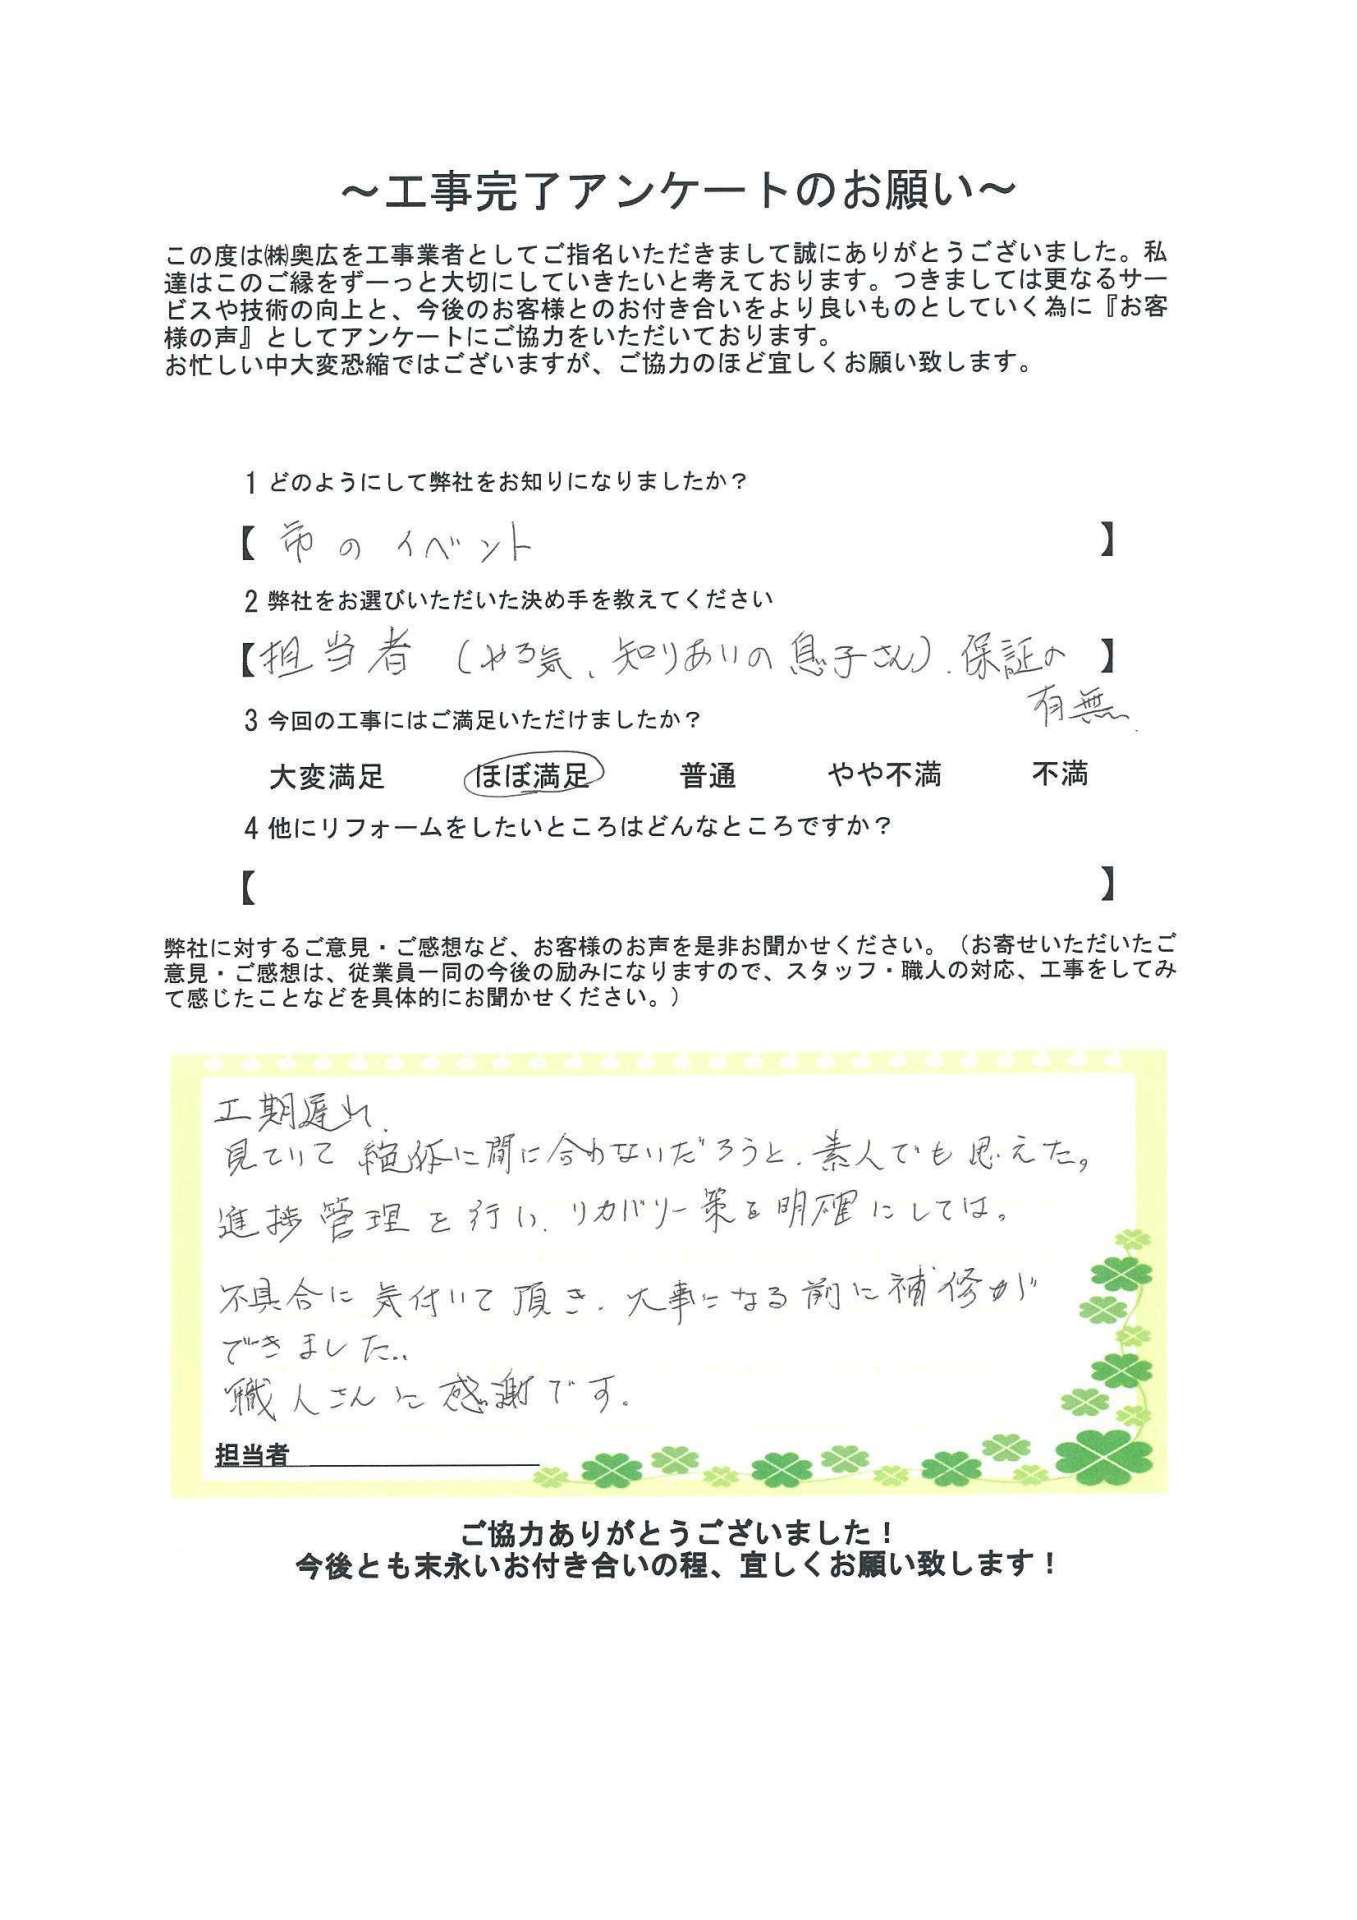 ～工事完了アンケートのお願い～
この度は㈱奥広を工事業者としてご指名いただきまして誠にありがとうございました。私
達はこのご縁をずーっと大切にしていきたいと考えております。つきましては更なるサー
ビスや技術の向上と、今後のお客様とのお付き合いをより良いものとしていく為に『お客
様の声』としてアンケートにご協力をいただいております。
お忙しい中大変恐縮ではございますが、ご協力のほど宜しくお願い致します。
1 どのようにして弊社をお知りになりましたか？
【 市のイベント 】
2 弊社をお選びいただいた決め手を教えてください
【担当者（やる気、知りあいの息子さん）、保証の 】
有無。
3 今回の工事にはご満足いただけましたか？
大変満足 ほぼ満足 普通 やや不満 不満
4 他にリフォームをしたいところはどんなところですか？
【 】
弊社に対するご意見・ご感想など、お客様のお声を是非お聞かせください。（お寄せいただいたご
意見・ご感想は、従業員一同の今後の励みになりますので、スタッフ・職人の対応、工事をしてみ
て感じたことなどを具体的にお聞かせください。）
工期遅れ、
見ていて絶体に間に合わないだろうと、素人でも思えた。
進捗管理を行い、リカバリー策を明確にしては。
不具合に気付いて頂き、大事になる前に補修が
できました。
職人さんに感謝です。
担当者
ご協力ありがとうございました！
今後とも末永いお付き合いの程、宜しくお願い致します！